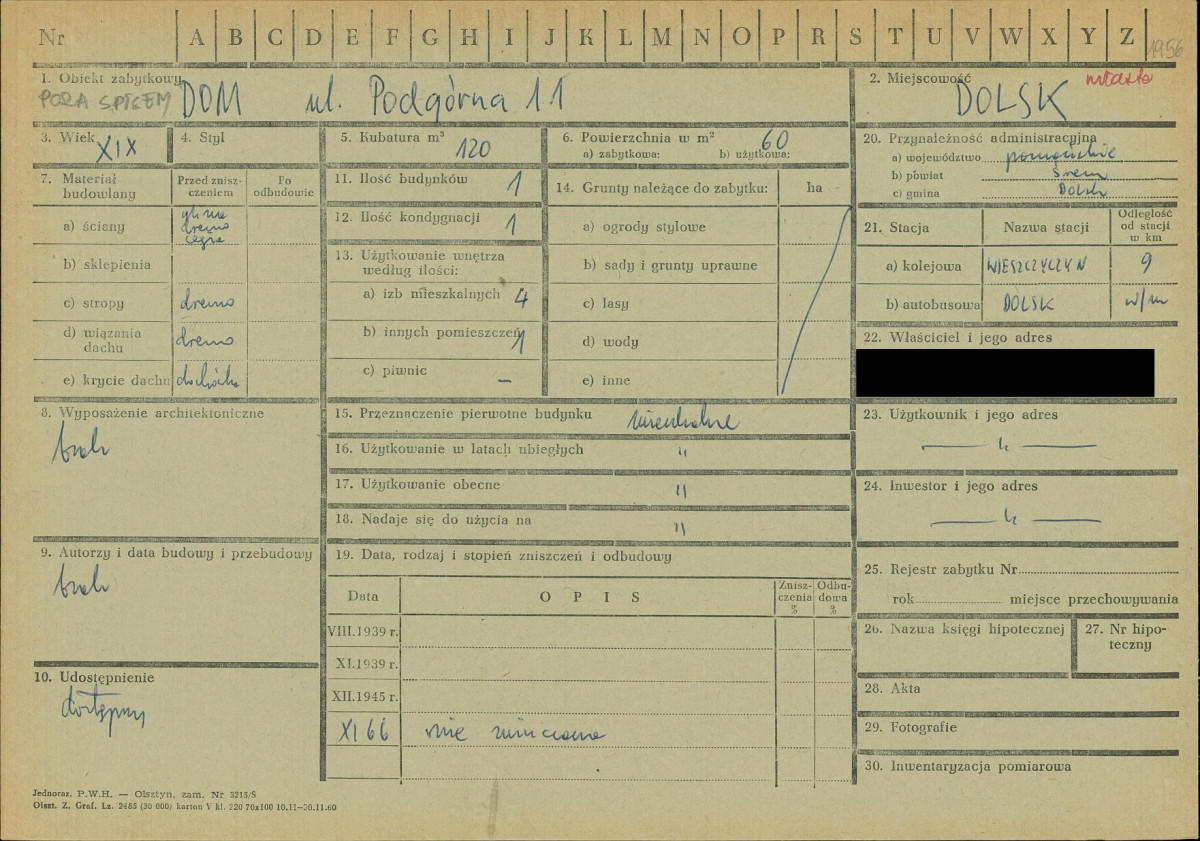 Nr A B C D E F G H I J K L M N O P R S T U V W X Y Z 1956
1. Obiekt zabytkowy
POZA SPISEM DOM ul. Podgórna 11
2. Miejscowość miasto
DOLSK
3. Wiek XIX
4. Styl
5. Kubatura m³ 120
6. Powierzchnia w m² 60
a) zabytkowa: b) użytkowa:
20. Przynależność administracyjna
a) województwo poznańskie
b) powiat Śrem
c) gmina Dolsk
7. Materiał budowlany
Przed zniszczeniem
Po odbudowie
a) ściany glina
drewno
cegła
b) sklepienia
c) stropy drewno
d) wiązania dachu drewno
e) krycie dachu dachówka
11. Ilość budynków 1
12. Ilość kondygnacji 1
13. Użytkowanie wnętrza
według ilości:
a) izb mieszkalnych 4
b) innych pomieszczeń 1
c) piwnic –
14. Grunty należące do zabytku: ha
a) ogrody stylowe
b) sady i grunty uprawne
c) lasy
d) wody
e) inne
21. Stacja Nazwa stacji Odległość od stacji w km
a) kolejowa WIESZCZYCZYN 9
b) autobusowa DOLSK w/m
22. Właściciel i jego adres
8. Wyposażenie architektoniczne
brak
15. Przeznaczenie pierwotne budynku mieszkalne
16. Użytkowanie w latach ubiegłych "
17. Użytkowanie obecne "
18. Nadaje się do użycia na "
23. Użytkownik i jego adres
— " —
24. Inwestor i jego adres
— " —
9. Autorzy i data budowy i przebudowy
brak
19. Data, rodzaj i stopień zniszczeń i odbudowy
Data OPIS Zniszczenia % Odbudowa %
VIII.1939 r.
XI.1939 r.
XII.1945 r.
XI 66 nie zniszczone
25. Rejestr zabytku Nr
rok miejsce przechowywania
26. Nazwa księgi hipotecznej
27. Nr hipoteczny
10. Udostępnienie
dostępny
28. Akta
29. Fotografie
30. Inwentaryzacja pomiarowa
Jednoraz. P.W.H. — Olsztyn, zam. Nr 3215/S
Olszt. Z. Graf. Lz. 2485 (30 000) karton V kl. 220 70x100 10.11—30.11.60